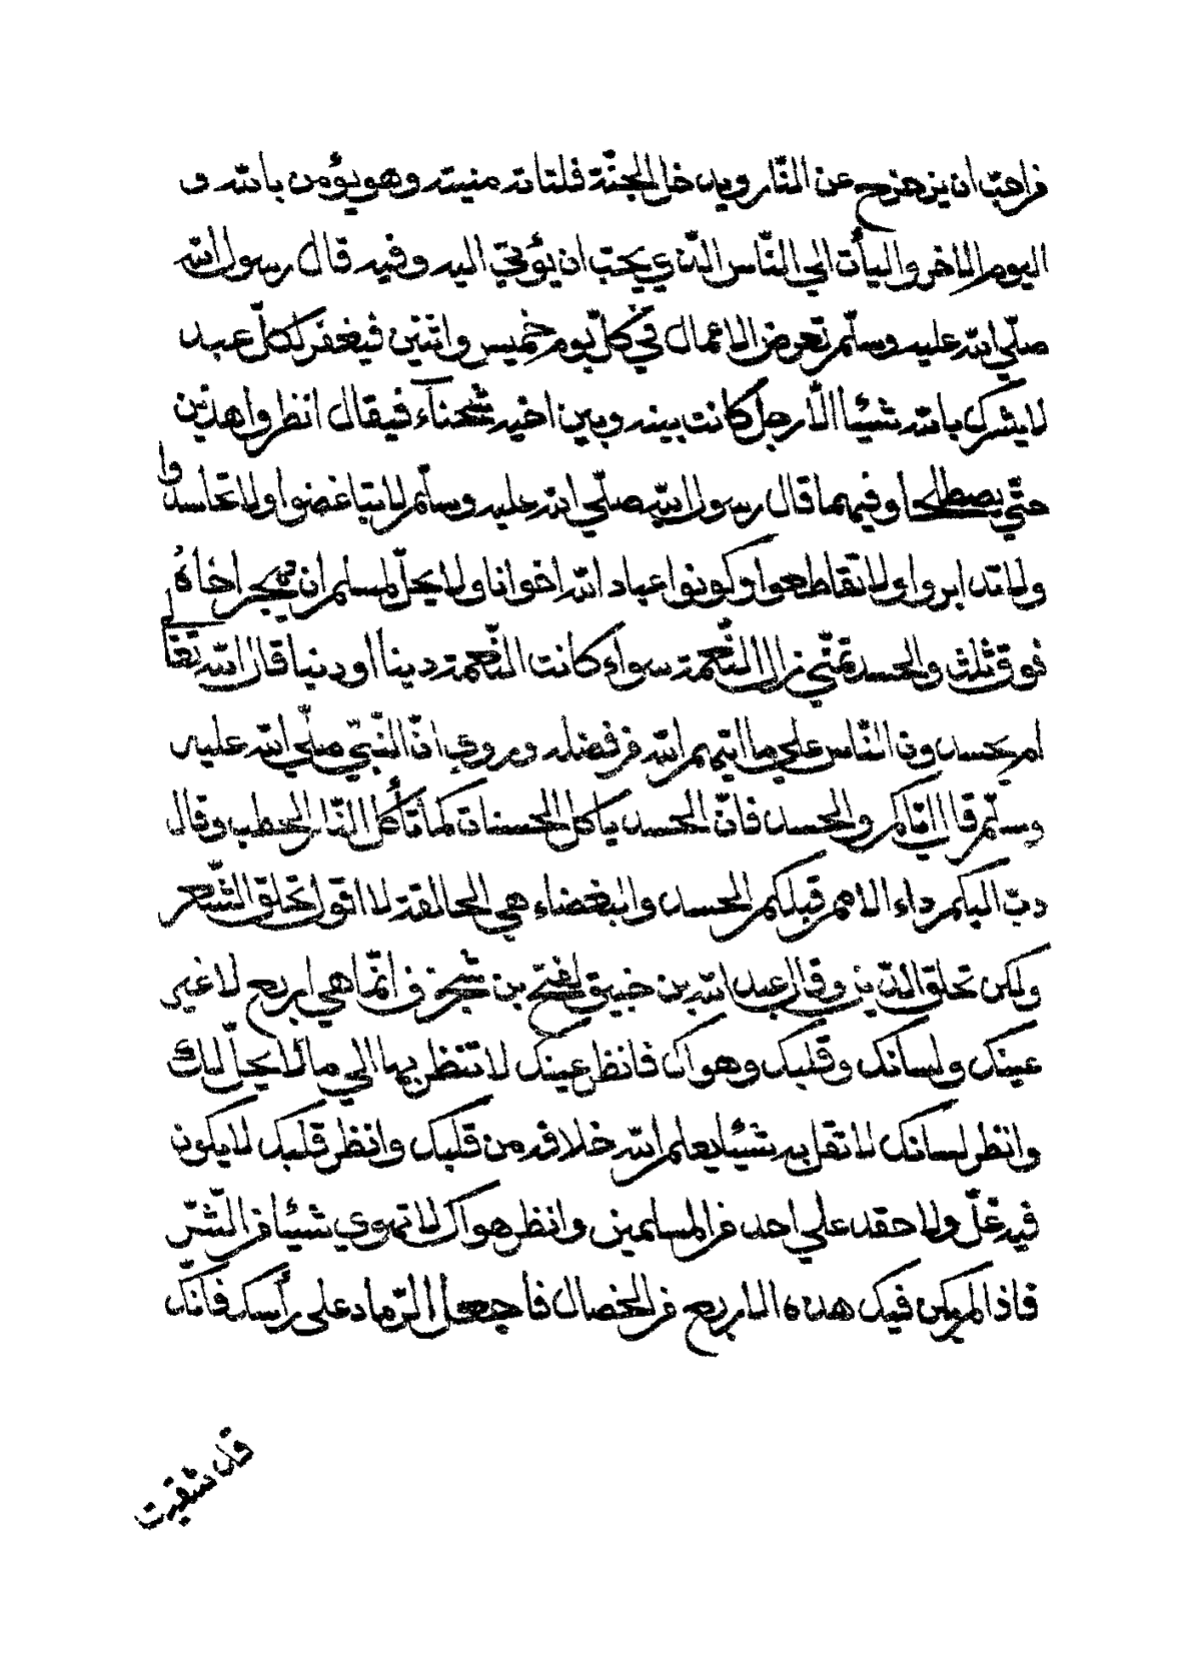 من احب ان يزحزح عن النّار ويدخل الجنّة فلتاته منيته وهو يؤمن بالله و
اليوم الاخر وليأت الي النّاس الذي يحبّ ان يؤتي اليه وفيه قال رسول الله
صلّي الله عليه وسلّم تعرض الاعمال في كلّ يوم خميس واثنين فيغفر لكلّ عبد
لا يشرك بالله شيئا الّا رجل كانت بينه وبين اخيه شحنآء فيقال انظروا هذين
حتّي يصطلحا وفيهما قال رسول الله صلّي الله عليه وسلّم لا تباغضوا ولا تحاسدوا
ولا تدابروا ولا تقاطعوا وكونوا عباد الله اخوانا ولا يحلّ لمسلم ان يهجر اخاهُ
فوق ثلث والحسد تمنّي زوال النّعمة سواء كانت النّعمة دينا او دنيا قال الله تعالي
ام يحسدون النّاس علي ما اتيهم الله من فضله وروي انّ النّبيّ صلّي الله عليه
وسلّم قال ايّاكم والحسد فانّ الحسد ياكل الحسنات كما تأكل النّار الحطب وقال
دبّ اليكم داء الامم قبلكم الحسد والبغضاء هي الحالقة لا اقول تحلق الشّعر
ولكن تحلق الدّين وقال عبد الله بن خبيق لفتح بن شحرف انّما هي اربع لا غير
عينك ولسانك وقلبك وهواك فانظر عينك لا تنظر بها الي ما لا يحلّ لك
وانظر لسانك لا تقل به شيئا يعلم الله خلافه من قلبك وانظر قلبك لا يكون
فيه غلّ ولا حقد علي احد من المسلمين وانظر هواك لا تهوي شيئا من الشّرّ
فاذا لم يكن فيك هذه الاربع من الخصال فاجعل الرّماد علي رأسك فانّك
قد شقيت